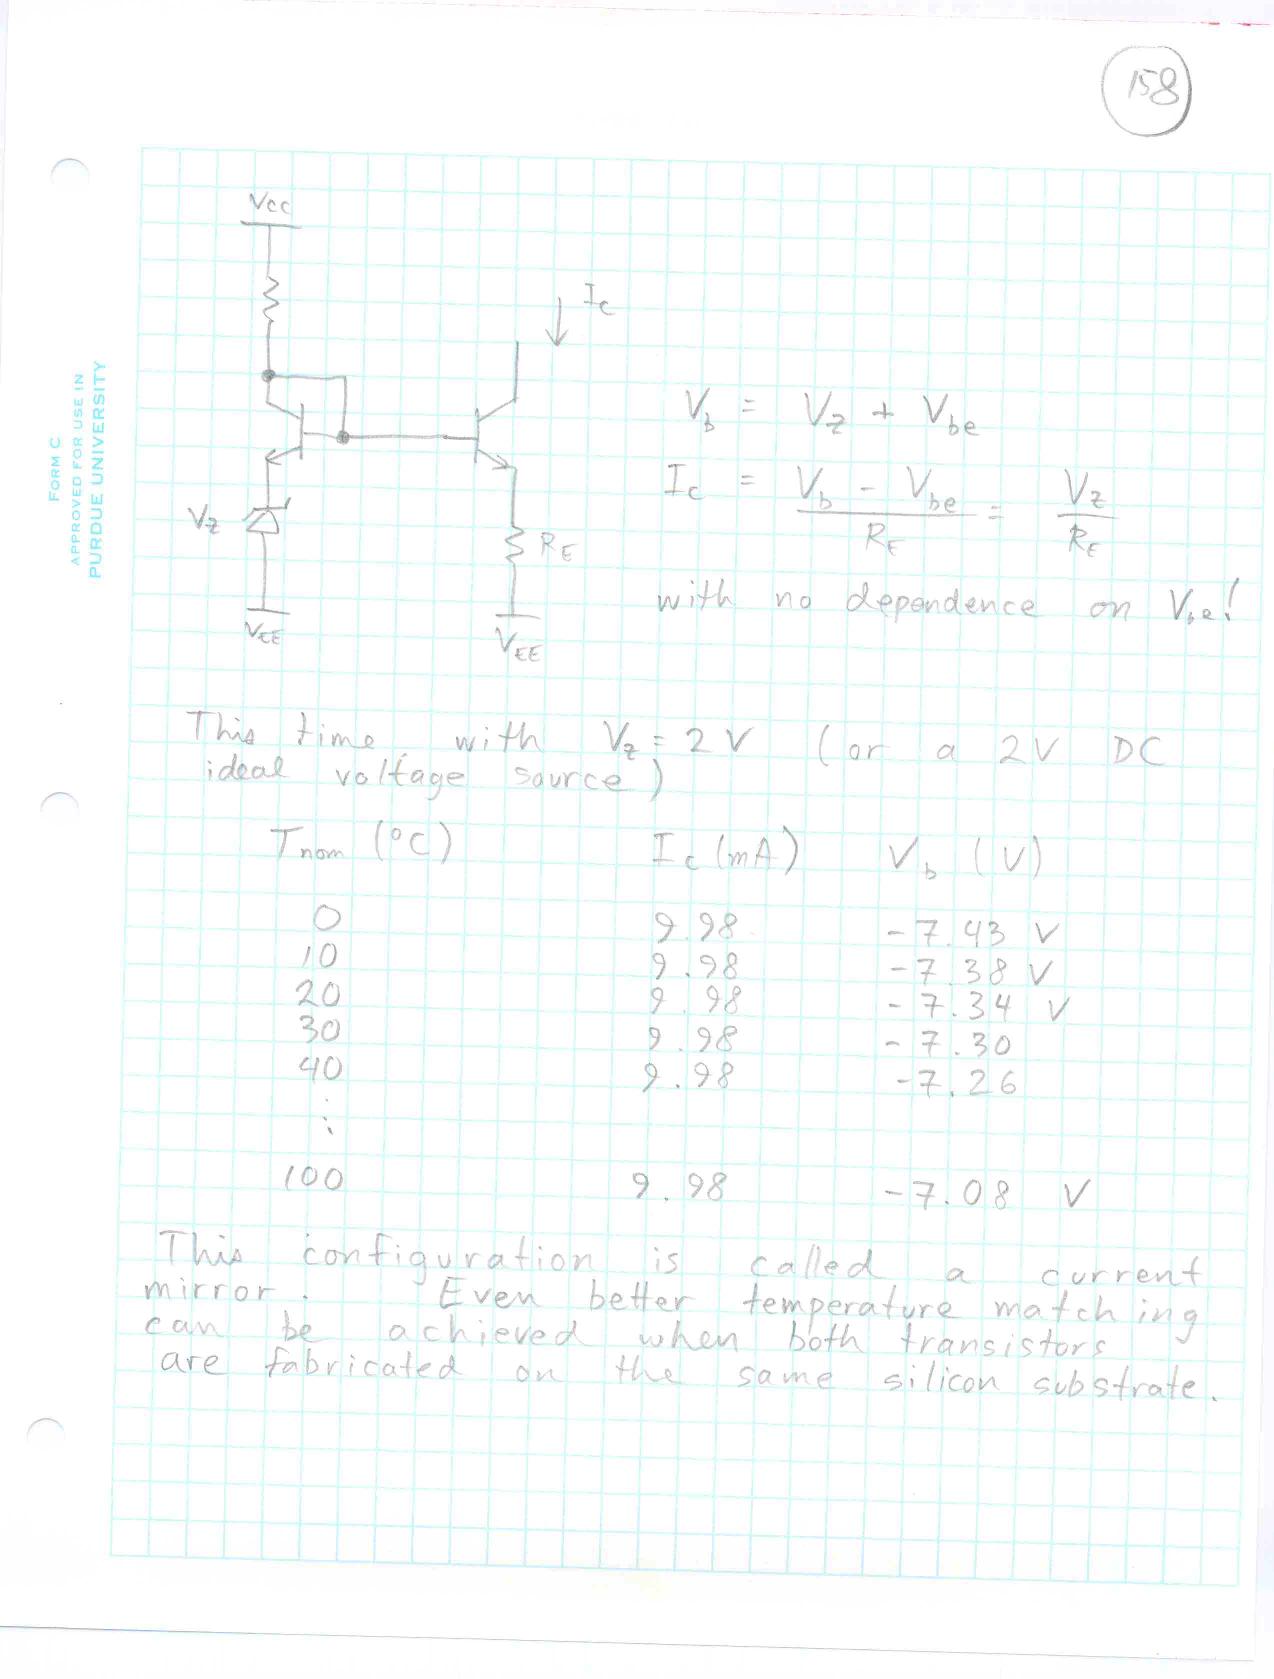 158
FORM C
APPROVED FOR USE IN
PURDUE UNIVERSITY
Vcc
Ic
Vz
RE
VEE
VEE
Vb = Vz + Vbe
Ic = Vb - Vbe / RE = Vz / RE
with no dependence on Vbe!
This time with Vz = 2V (or a 2V DC
ideal voltage source)
Tnom (°C) Ic (mA) Vb (V)
0 9.98 -7.43 V
10 9.98 -7.38 V
20 9.98 -7.34 V
30 9.98 -7.30
40 9.98 -7.26
:
100 9.98 -7.08 V
This configuration is called a current
mirror. Even better temperature matching
can be achieved when both transistors
are fabricated on the same silicon substrate.